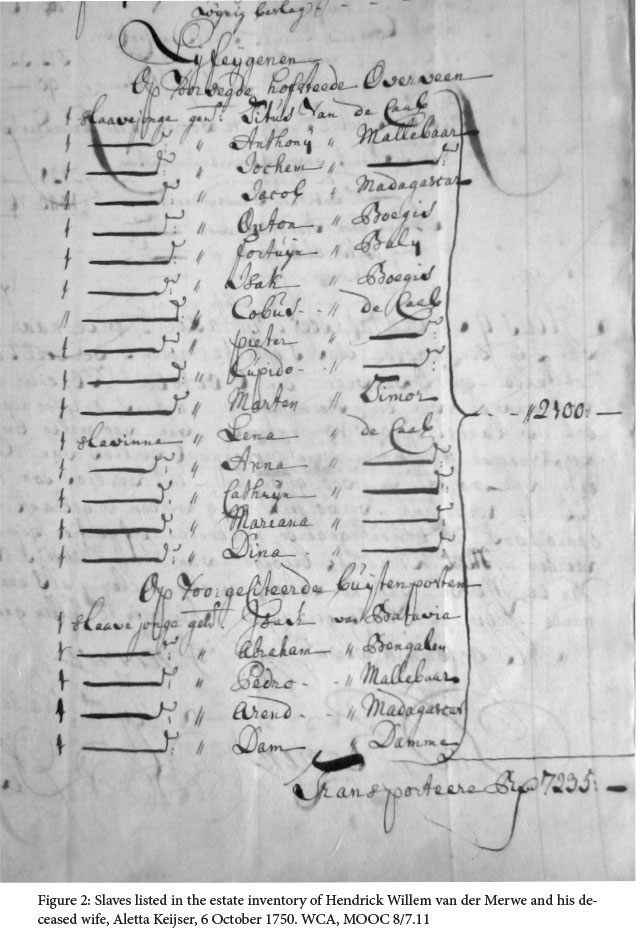 Lyfeÿgenen
Op Voorsegde hofsteede Overveen
1 slaavejonge gen:t Titus Van de Caab
1 — d:o " Anthonÿ " Mallebaar
1 — d:o " Jochem " — d:o
1 — d:o " Jacob " Madagascar
1 — d:o " Anton " Boegis
1 — d:o " Fortuÿn " Balÿ
1 — d:o " Isak " Boegis
1 — d:o " Cobus - " de Caab
1 — d:o " Pieter " — d:o
1 — d:o " Cupido - " — d:o
1 — d:o " Marten " Timor
1 slavinne " Lena " de Caab
1 — d:o " Anna " — d:o
1 — d:o " Cathrÿn " — d:o
1 — d:o " Mareana " — d:o
1 — d:o " Dina - " — d:o
- " 2100: —
Op Voorgeciteerde buÿtenposten
1 slaavejonge gen:t Isack van Batavia
1 — d:o " Abraham " Bengalen
1 — d:o " Pedro - - " Mallebaar
1 — d:o " Arend - - " Madagascar
1 — d:o " Dam " Damme
Transporteere 7235: —
Figure 2: Slaves listed in the estate inventory of Hendrick Willem van der Merwe and his de-
ceased wife, Aletta Keijser, 6 October 1750. WCA, MOOC 8/7.11